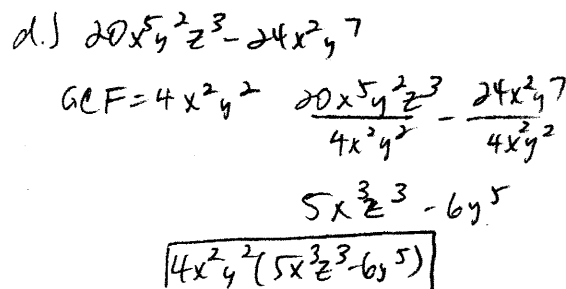 d.) 20x⁵y²z³-24x²y⁷
GCF=4x²y² 20x⁵y²z³/4x²y² - 24x²y⁷/4x²y²
5x³z³-6y⁵
4x²y²(5x³z³-6y⁵)